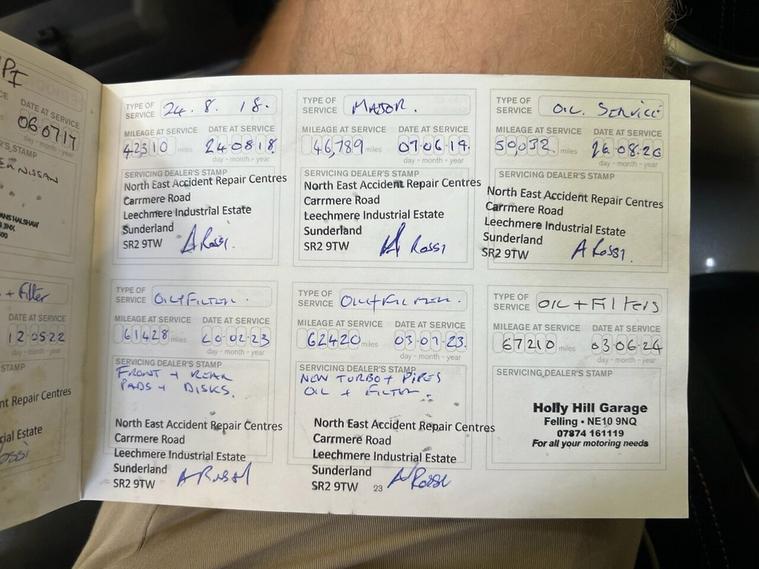 06 07 17
DATE AT SERVICE
day - month - year
+ Filter
DATE AT SERVICE
12 05 22
day - month - year
TYPE OF SERVICE 24. 8. 18.
MILEAGE AT SERVICE DATE AT SERVICE
42310 miles 24 08 18
day - month - year
SERVICING DEALER'S STAMP
North East Accident Repair Centres
Carrmere Road
Leechmere Industrial Estate
Sunderland
SR2 9TW A Rossi.
TYPE OF SERVICE MAJOR.
MILEAGE AT SERVICE DATE AT SERVICE
46,789 miles 07 06 19
day - month - year
SERVICING DEALER'S STAMP
North East Accident Repair Centres
Carrmere Road
Leechmere Industrial Estate
Sunderland
SR2 9TW A Rossi
TYPE OF SERVICE OIL. SERVICE
MILEAGE AT SERVICE DATE AT SERVICE
50,032 miles 26 08 20
day - month - year
SERVICING DEALER'S STAMP
North East Accident Repair Centres
Carrmere Road
Leechmere Industrial Estate
Sunderland
SR2 9TW A Rossi.
TYPE OF SERVICE OIL + FILTER.
MILEAGE AT SERVICE DATE AT SERVICE
61428 miles 20 02 23
day - month - year
SERVICING DEALER'S STAMP
FRONT + REAR
PADS + DISKS.
North East Accident Repair Centres
Carrmere Road
Leechmere Industrial Estate
Sunderland
SR2 9TW A Rossi
TYPE OF SERVICE OIL + FILTER.
MILEAGE AT SERVICE DATE AT SERVICE
62420 miles 03 07 23
day - month - year
SERVICING DEALER'S STAMP
NEW TURBO + PIPES
OIL + FILTER.
North East Accident Repair Centres
Carrmere Road
Leechmere Industrial Estate
Sunderland
SR2 9TW A Rossi
23
TYPE OF SERVICE OIL + FILTERS
MILEAGE AT SERVICE DATE AT SERVICE
67210 miles 03 06 24
day - month - year
SERVICING DEALER'S STAMP
Holly Hill Garage
Felling • NE10 9NQ
07874 161119
For all your motoring needs